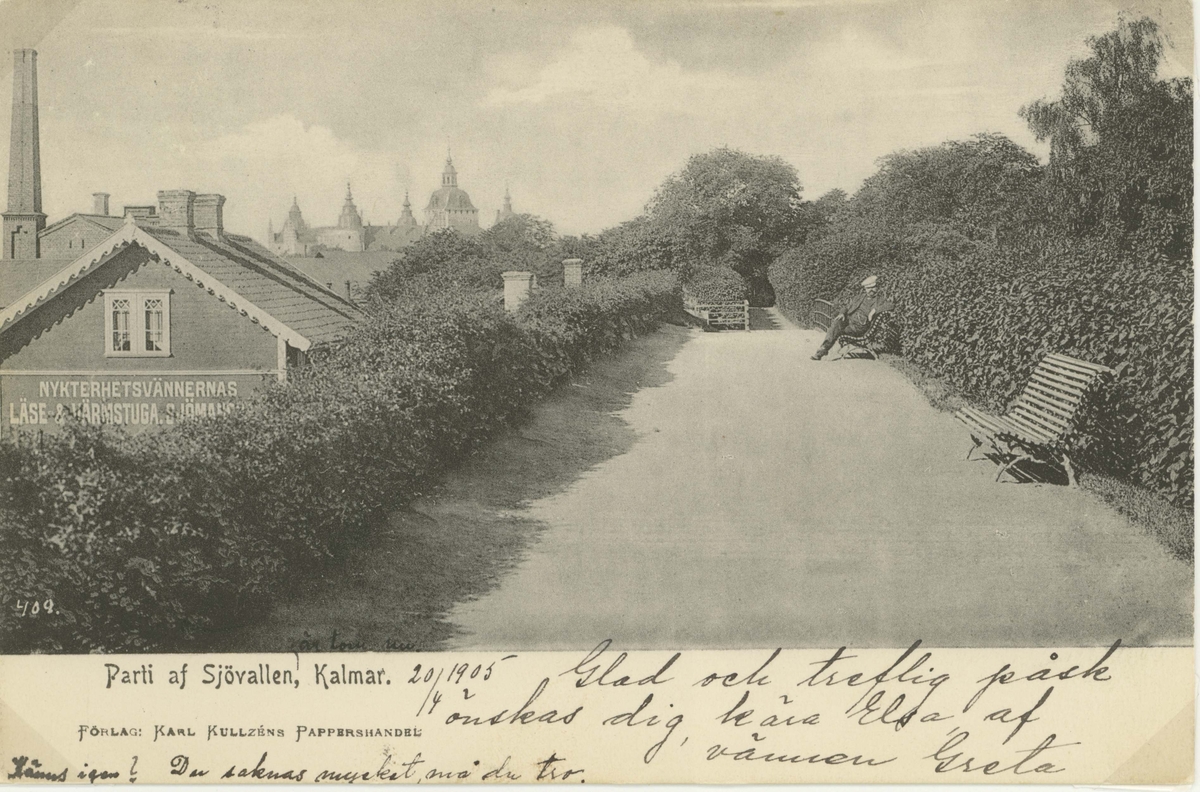 NYKTERHETSVÄNNERNAS
LÄSE- & VÄRMSTUGA. SJÖMANS
409.
Parti af Sjövallen, Kalmar.
20/4 1905
Glad och treflig påsk
önskas dig, kära Elsa, af
vännen Greta
Förlag: Karl Kullzéns Pappershandel
Känns igen? Du saknas mycket, må du tro.